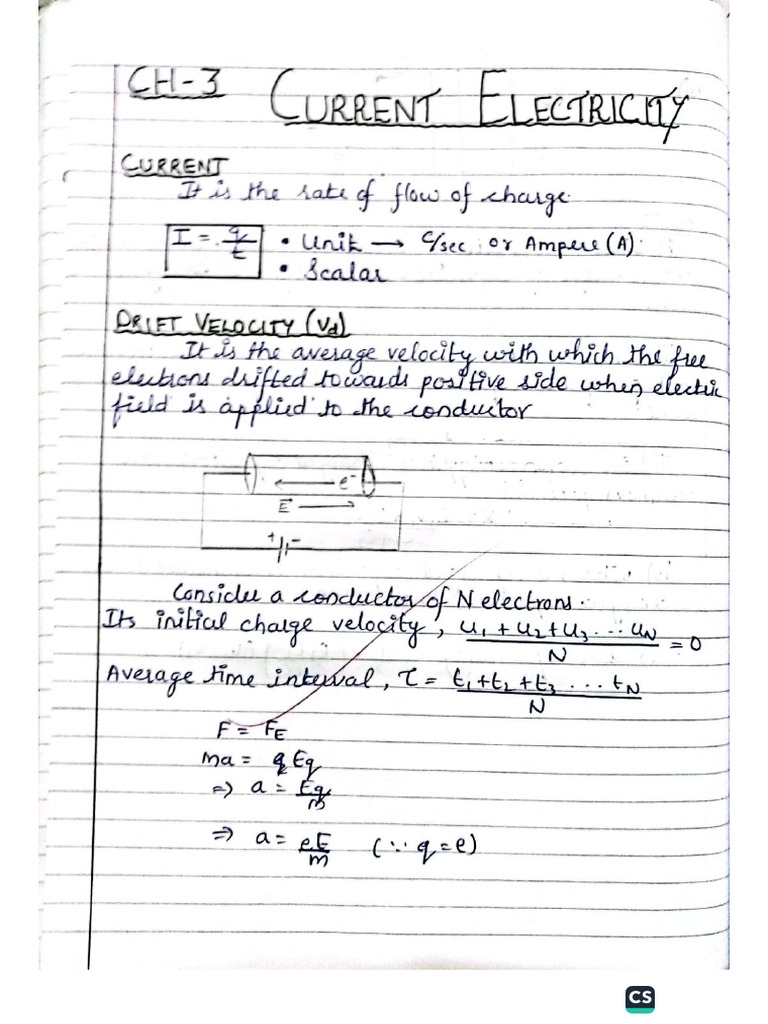 CH-3 CURRENT ELECTRICITY
CURRENT
It is the rate of flow of charge.
I = q/t • Unit → C/sec or Ampere (A).
• Scalar
DRIFT VELOCITY (Vd)
It is the average velocity with which the free
electrons drifted towards positive side when electric
field is applied to the conductor
← e-
E →
+ -
Consider a conductor of N electrons.
Its initial charge velocity, u1 + u2 + u3 ... uN / N = 0
Average time interval, τ = t1 + t2 + t3 ... tN / N
F = FE
ma = Eq
⇒ a = Eq/m
⇒ a = eE/m (∵ q = e)
CS